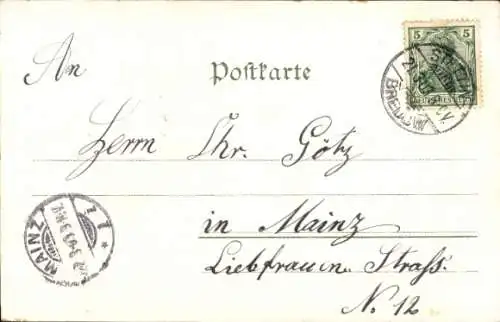 5 5
An
Postkarte
BREDOW
Herrn Chr. Götz
MAINZ
in Mainz
Liebfrauen Strass.
N. 12